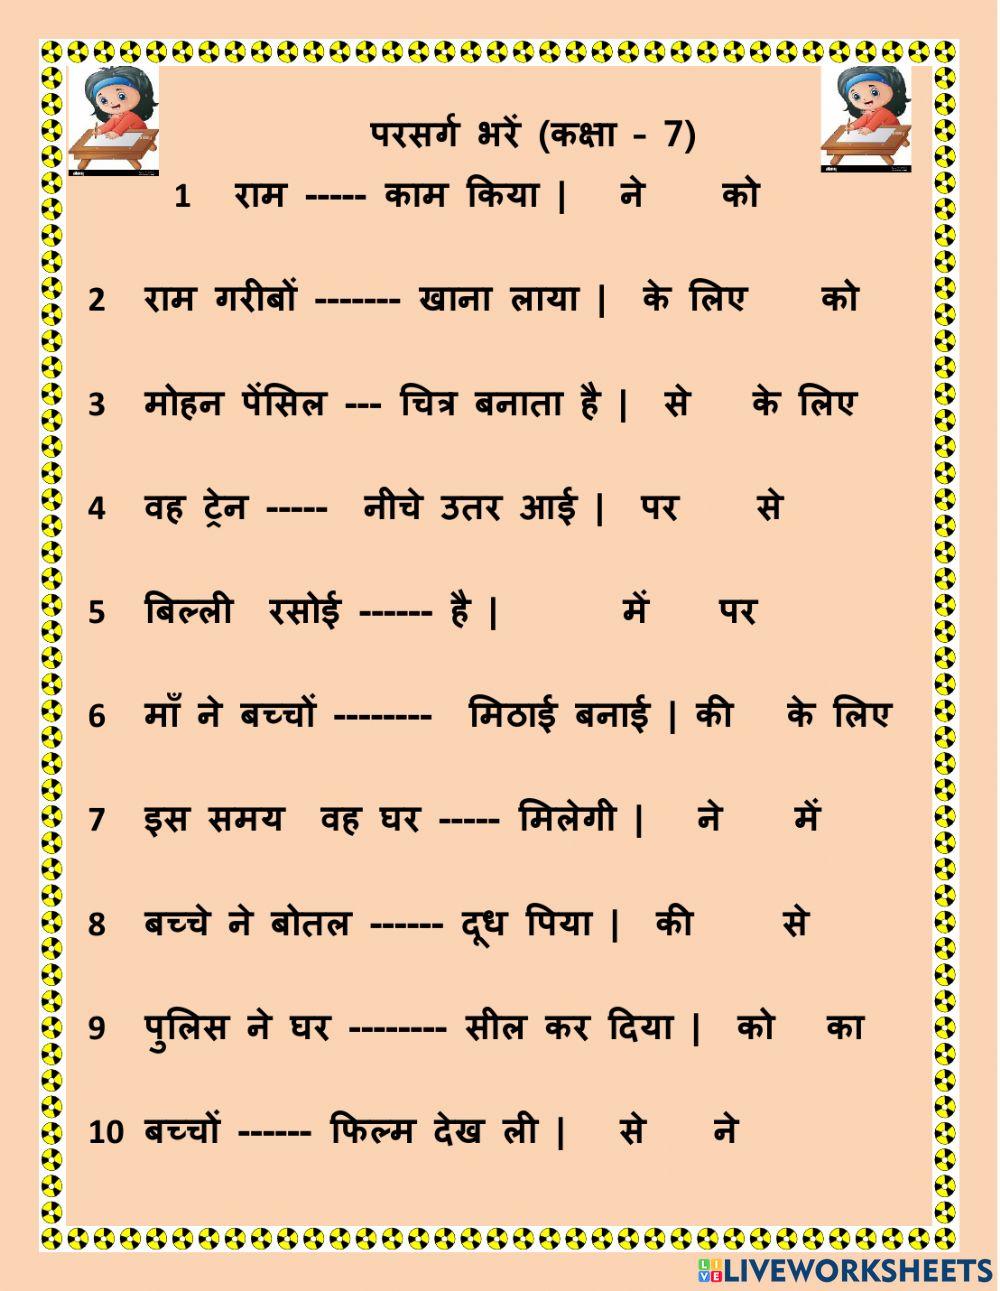 परसर्ग भरें (कक्षा – 7)
1 राम ----- काम किया | ने को
2 राम गरीबों ------- खाना लाया | के लिए को
3 मोहन पेंसिल --- चित्र बनाता है | से के लिए
4 वह ट्रेन ----- नीचे उतर आई | पर से
5 बिल्ली रसोई ------ है | में पर
6 माँ ने बच्चों -------- मिठाई बनाई | की के लिए
7 इस समय वह घर ----- मिलेगी | ने में
8 बच्चे ने बोतल ------ दूध पिया | की से
9 पुलिस ने घर -------- सील कर दिया | को का
10 बच्चों ------ फिल्म देख ली | से ने
LIVEWORKSHEETS